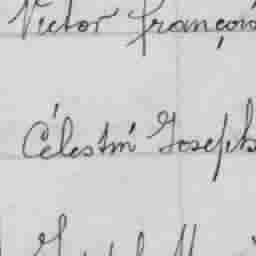 Victor françois
Célestin Joseph